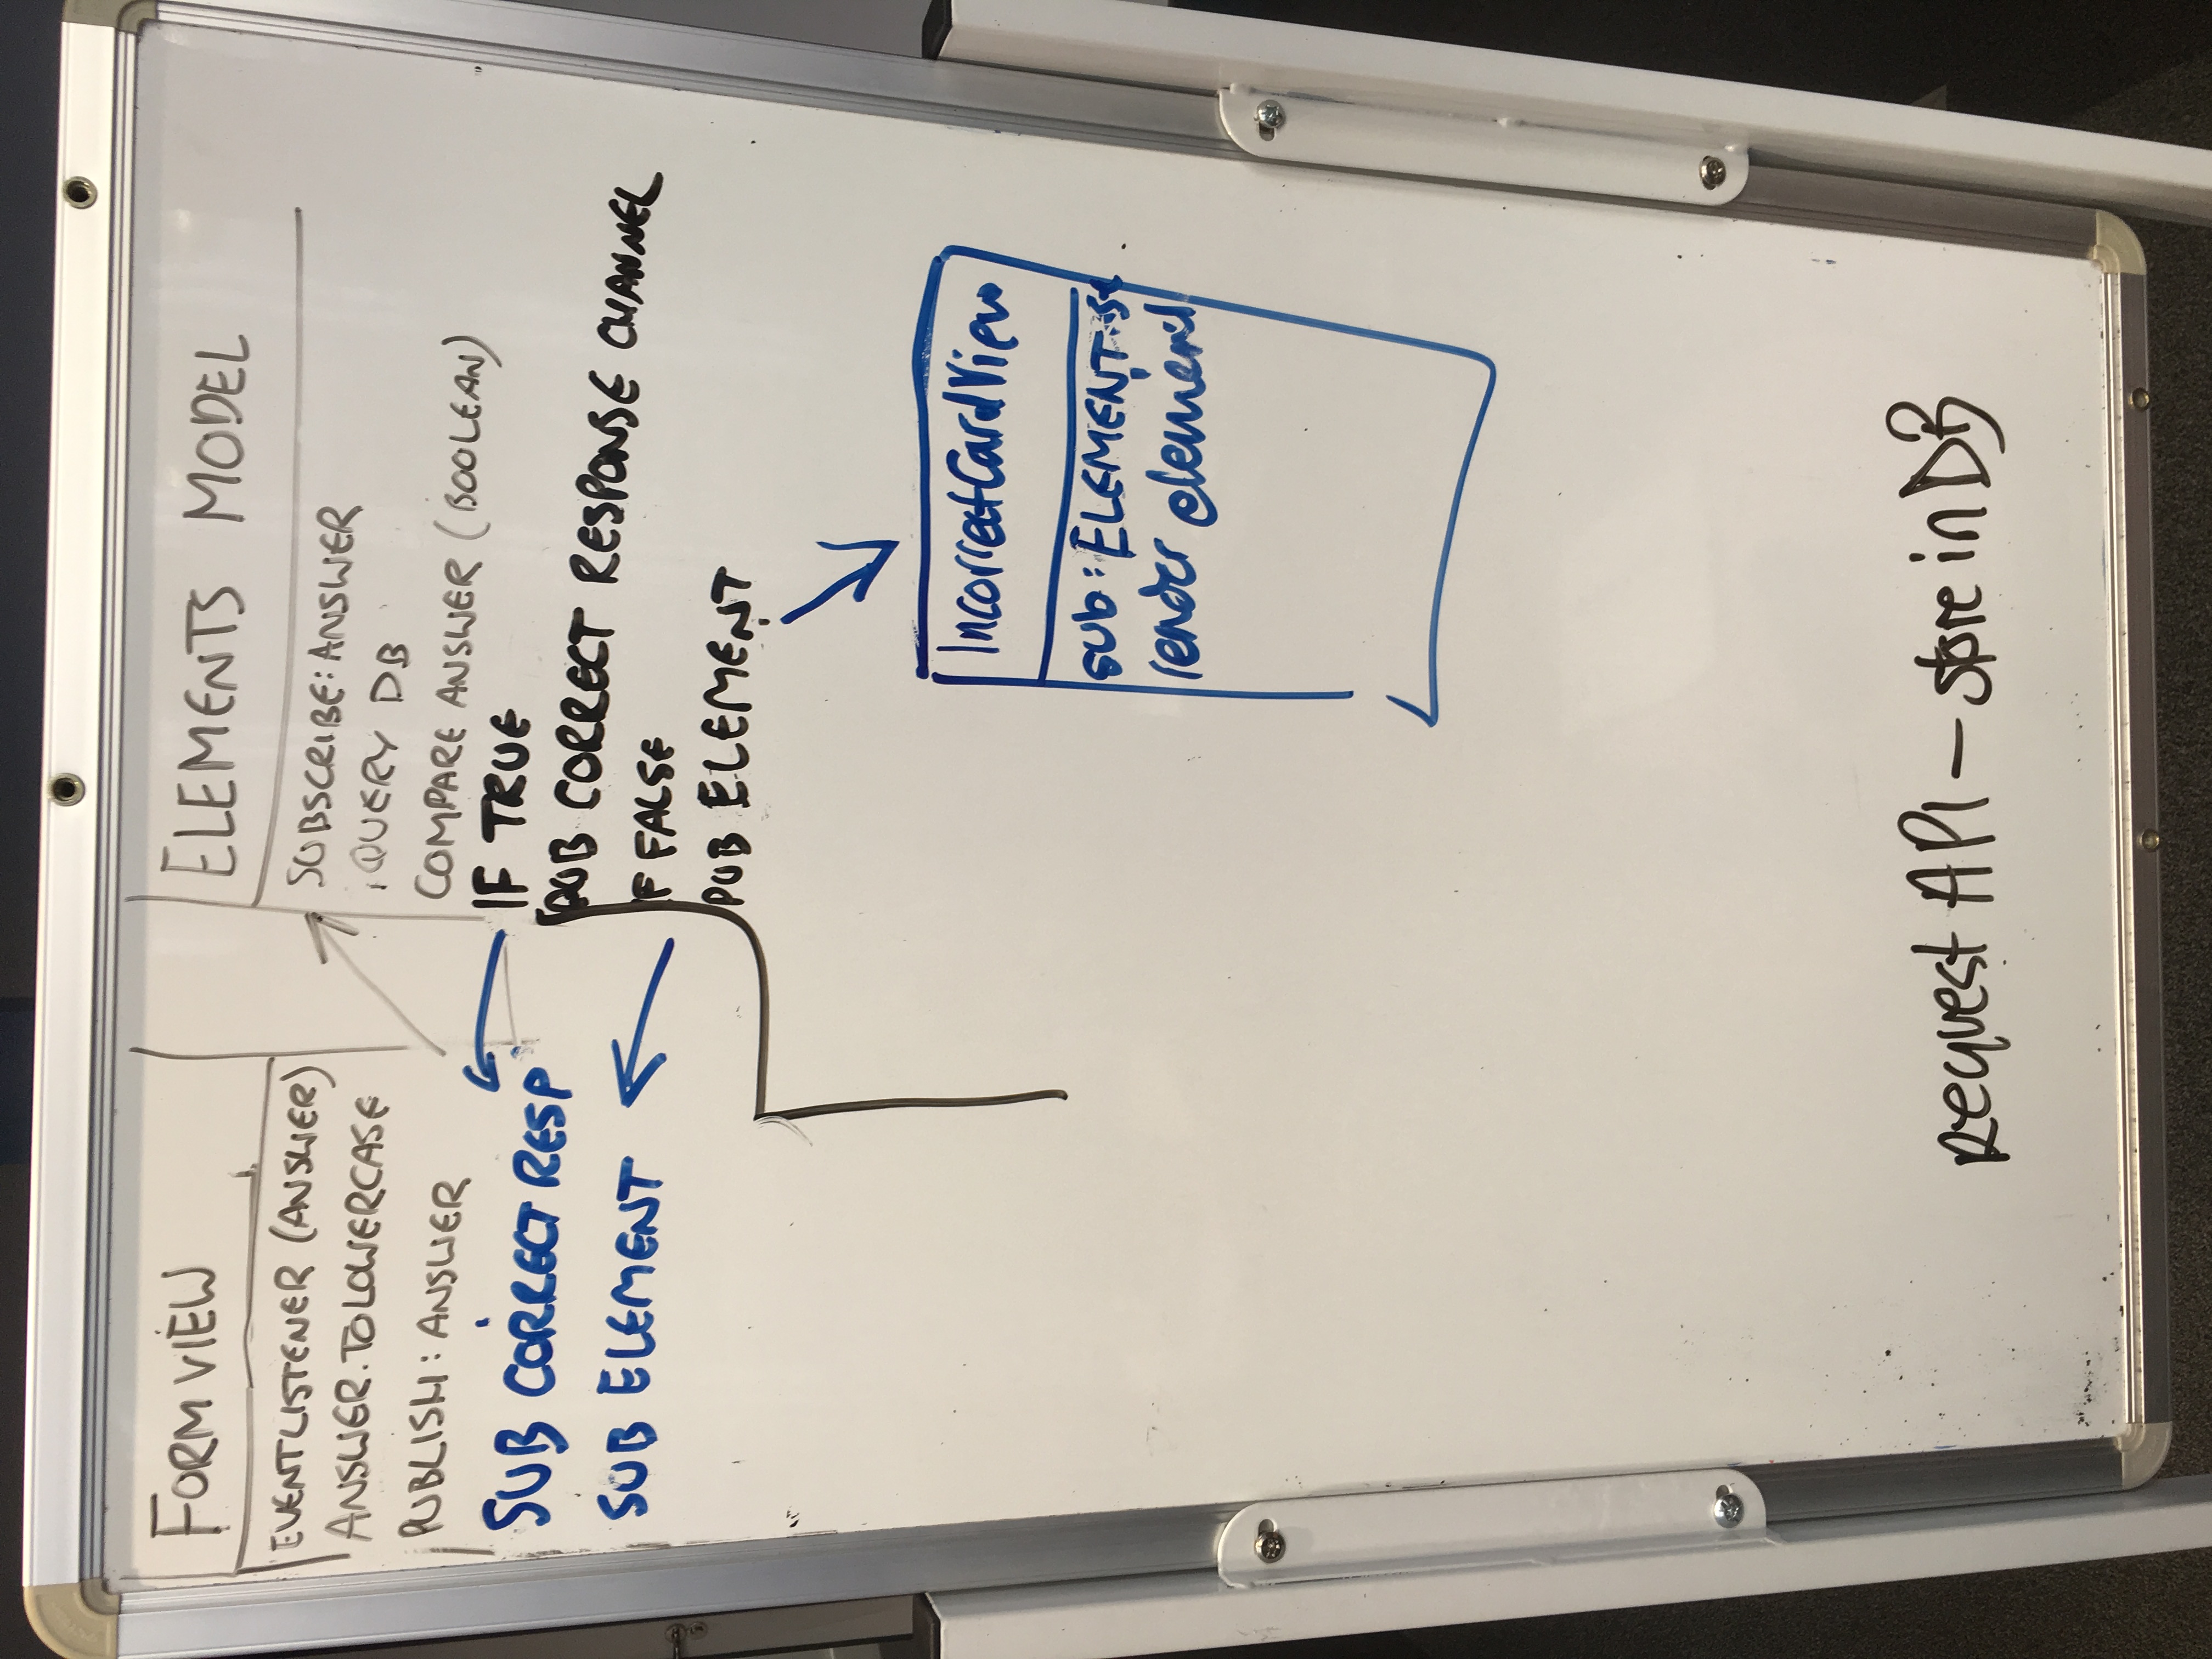 FORM VIEW
EVENTLISTENER (ANSWER)
ANSWER.TOLOWERCASE
PUBLISH: ANSWER
SUB CORRECT RESP
SUB ELEMENT
ELEMENTS MODEL
SUBSCRIBE: ANSWER
QUERY DB
COMPARE ANSWER (BOOLEAN)
IF TRUE
PUB CORRECT RESPONSE CHANNEL
IF FALSE
PUB ELEMENT
IncorrectCardView
sub: ELEMENT
render element
request API – store in DB